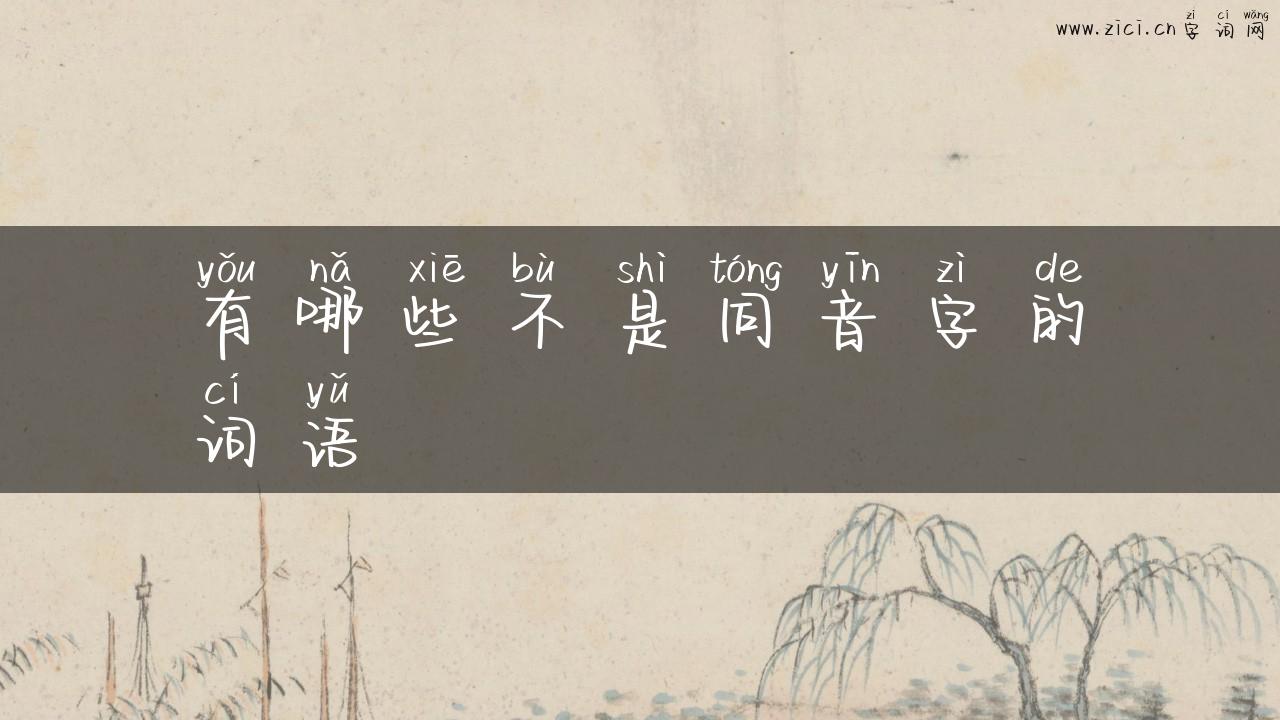 www.zici.cn字词网
zì cí wǎng
yǒu nǎ xiē bù shì tóng yīn zì de
有哪些不是同音字的
cí yǔ
词语